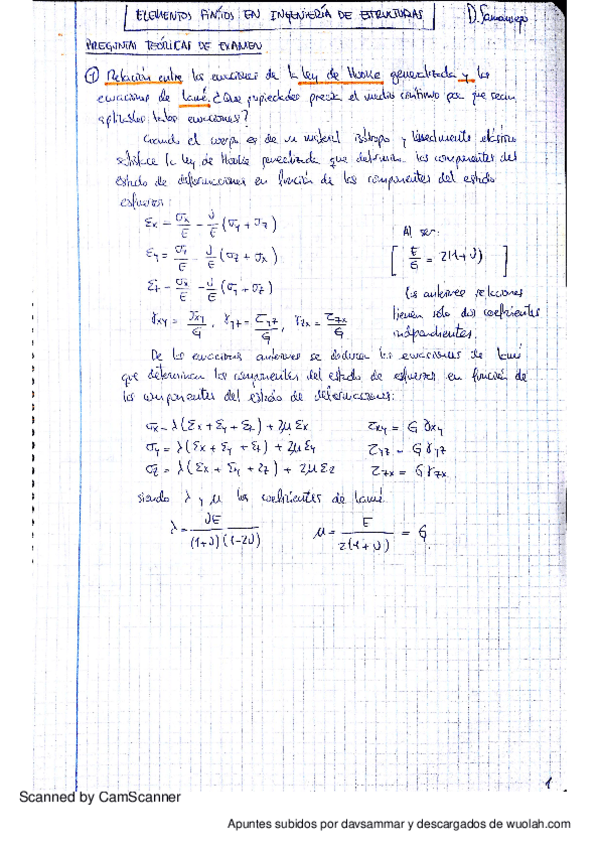 ELEMENTOS FINITOS EN INGENIERÍA DE ESTRUCTURAS
D. Sammarego
PREGUNTAS TEÓRICAS DE EXAMEN
① Relación entre las ecuaciones de la ley de Hooke generalizada y las
ecuaciones de Lamé. ¿Que propiedades precisa el medio continuo para que sean
aplicables todas ecuaciones?
Cuando el cuerpo es de un material isótropo y linealmente elástico
satisface la ley de Hooke generalizada que determina las componentes del
estado de deformaciones en función de las componentes del estado
esfuerzo:
εx = σx/E - ν/E (σy + σz)
εy = σy/E - ν/E (σz + σx)
εz = σx/E - ν/E (σy + σz)
γxy = τxy/G, γyz = τyz/G, γzx = τzx/G
Al ser:
[ E/G = 2(1+ν) ]
las anteriores relaciones
tienen sólo dos coeficientes
independientes.
De las ecuaciones anteriores se deducen las ecuaciones de Lamé
que determinan las componentes del estado de esfuerzos en función de
las componentes del estado de deformaciones:
σx = λ(εx + εy + εz) + 2μεx τxy = G γxy
σy = λ(εx + εy + εz) + 2μεy τyz = G γyz
σz = λ(εx + εy + εz) + 2μεz τzx = G γzx
siendo λ y μ los coeficientes de Lamé.
λ = νE/(1+ν)(1-2ν) μ = E/2(1+ν) = G
1
Scanned by CamScanner
Apuntes subidos por davsammar y descargados de wuolah.com